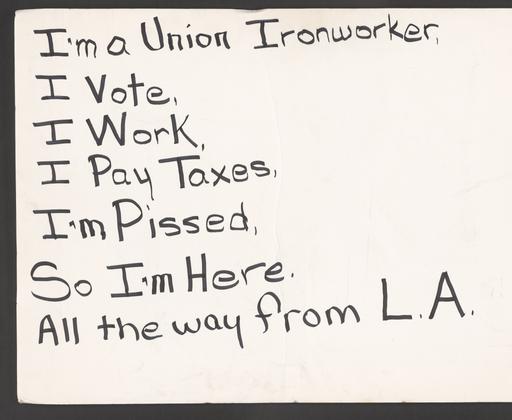 I'm a Union Ironworker,
I Vote,
I Work,
I Pay Taxes,
I'm Pissed,
So I'm Here.
All the way from L.A.